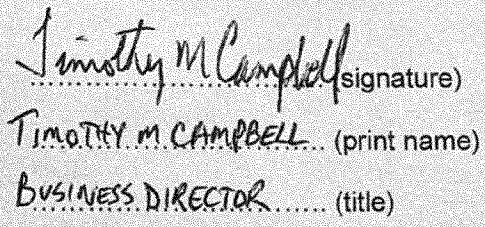 Timothy M Campbell (signature)
TIMOTHY M CAMPBELL (print name)
BUSINESS DIRECTOR (title)